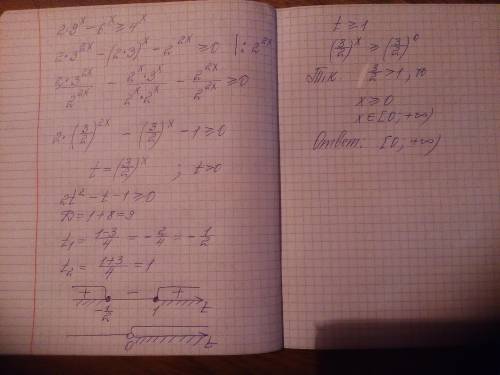 2·9ˣ − 6ˣ ≥ 4ˣ
2·3²ˣ − (2·3)ˣ − 2²ˣ ≥ 0 | : 2²ˣ
2·3²ˣ/2²ˣ − 2ˣ·3ˣ/2ˣ·2ˣ − 2²ˣ/2²ˣ ≥ 0
2·(3/2)²ˣ − (3/2)ˣ − 1 ≥ 0
t = (3/2)ˣ ; t>0
2t² − t − 1 ≥ 0
D = 1+8 = 9
t₁ = (1−3)/4 = −2/4 = −1/2
t₂ = (1+3)/4 = 1
+ − +
−1/2 1 t
0 t
t ≥ 1
(3/2)ˣ ≥ (3/2)⁰
Т.к. 3/2 > 1, то
x ≥ 0
x ∈ [0; +∞)
Ответ: [0; +∞)